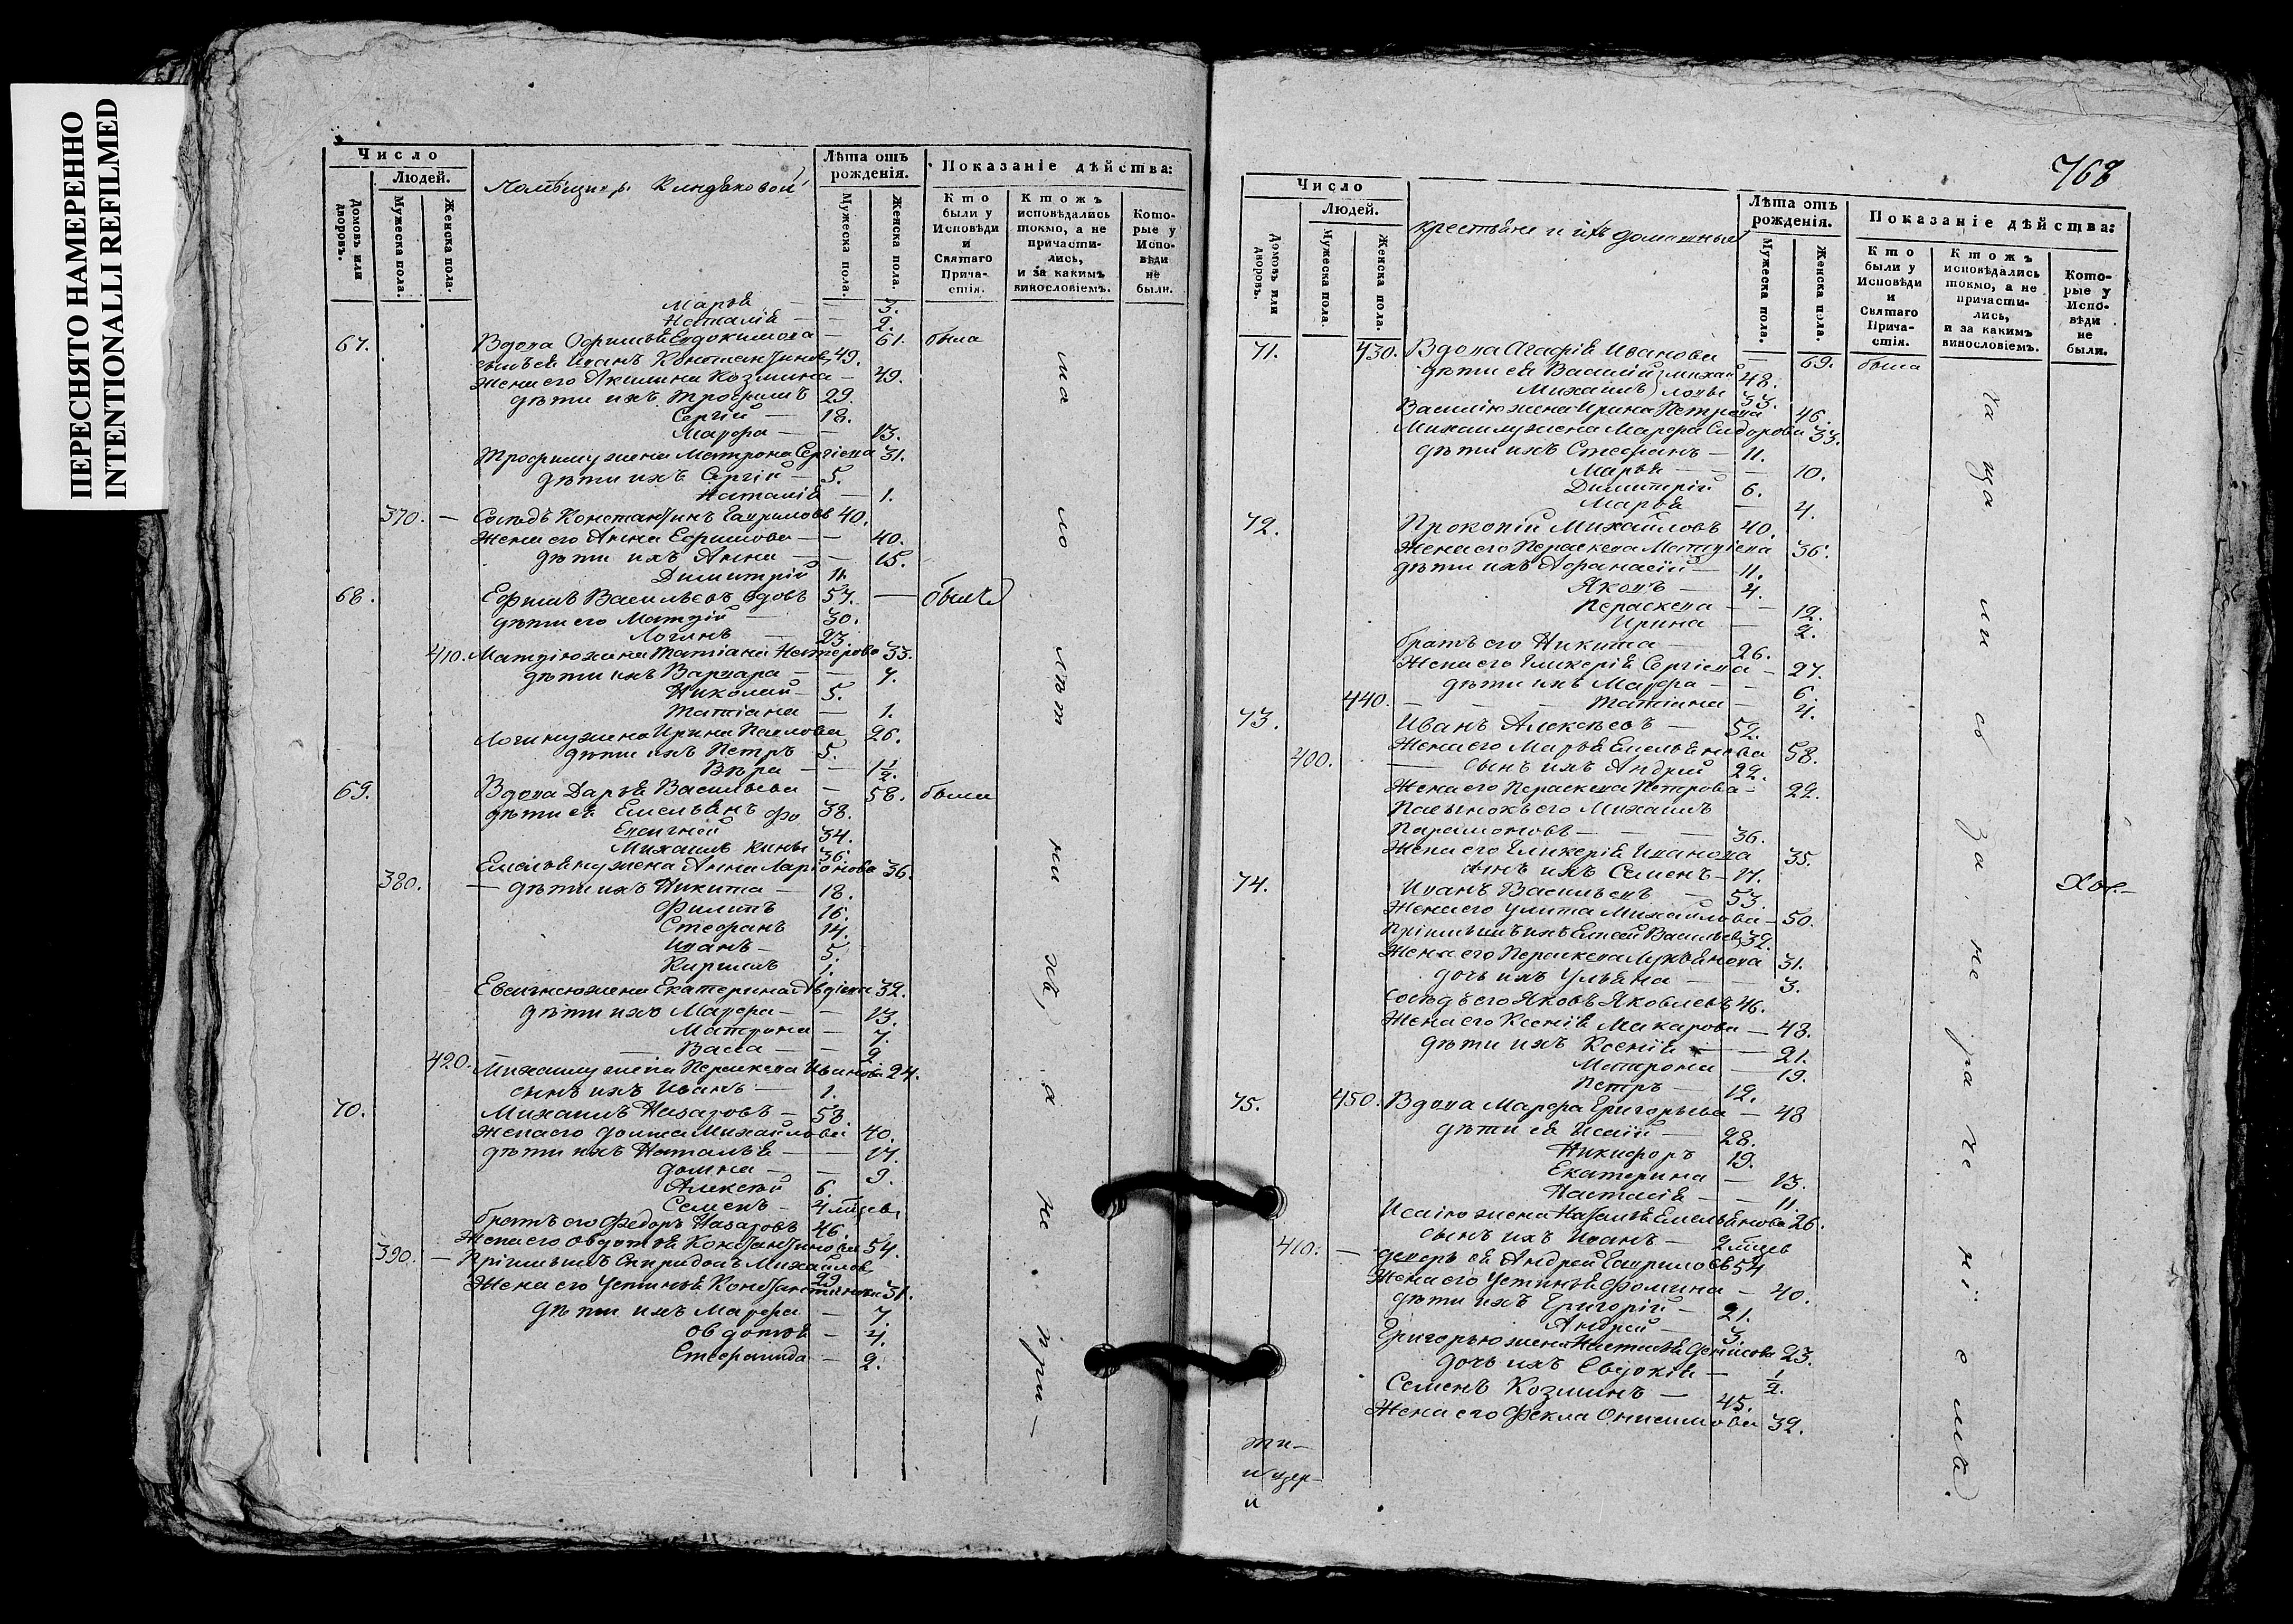 ПЕРЕСНЯТО НАМЕРЕННО
INTENTIONALLI REFILMED
Число
Людей.
Домовъ или дворовъ.
Мужеска пола.
Женска пола.
Лѣта отъ рожденія.
Мужеска пола.
Женска пола.
Показаніе дѣйства:
Кто были у Исповѣди и Святаго Причастія.
Ктожъ исповѣдались токмо, а не причастились, и за какимъ винословіемъ.
Которые у Исповѣди не были.
Марья — — 3.
Наталія — — 2.
67. Вдова Евдокимова — 61. была
сынъ ея Иванъ Константиновъ 49.
Жена его Акилина Козмина — 49.
дѣти ихъ Трофимъ 29.
Сергій — 18.
Марфа — — 13.
Трофиму жена Матрона Сергіева 31.
дѣти ихъ Сергій — 5.
Наталія — 1.
370. — Сосѣдъ Константинъ Гавриловъ 40.
Жена его Анна Ефимова — — 40.
дѣти ихъ Анна — — 15.
Димитрій 11.
68. Ефимъ Васильевъ вдовъ 57. —
дѣти его Матвій — 30.
Логинъ — 23.
410. Матвію жена Татіана Нестерова 33.
дѣти ихъ Варвара — — 7.
Николай — 5.
Татіана — 1.
Логину жена Ирина Павлова 26.
дѣти ихъ Петръ 5.
Вѣра — — 1½.
69. Вдова Дарья Васильева — 58. была
дѣти ея Емельянъ 38.
34.
Михаилъ 36.
Емельяну жена Анна Ларіонова 36.
380. — дѣти ихъ Никита — 18.
Филипъ 16.
Стефанъ 14.
Иванъ — 5.
Кирилъ 1.
жена Екатерина Авдіева 32.
дѣти ихъ Марфа — — 13.
Матрона — 7.
Васса — — 2.
420. Михаилу жена Параскева Иванова 24.
сынъ ихъ Иванъ — 1.
70. Михаилъ Назаровъ — 58.
Жена его Михайлова 40.
дѣти ихъ Наталья — — 17.
Домна — — 9.
Алексѣй 6.
Семенъ —
братъ его Федоръ Назаровъ 46.
Жена его Овдотья Константинова 54.
390. — Спиридонъ Михайлов 29
Жена его Устинья Константинова 31.
дѣти ихъ Марфа — 7.
Овдотья — 4.
— 2.
768
Число
Людей.
Домовъ или дворовъ.
Мужеска пола.
Женска пола.
крестьяне и ихъ домашные
Лѣта отъ рожденія.
Мужеска пола.
Женска пола.
Показаніе дѣйства:
Кто были у Исповѣди и Святаго Причастія.
Ктожъ исповѣдались токмо, а не причастились, и за какимъ винословіемъ.
Которые у Исповѣди не были.
71. 430. Вдова Агафія Иванова — 69. была
дѣти ея Василій 48.
Михаилъ 33.
Василію жена Ирина Петрова 46.
Михаилу жена Марфа Сидорова 33.
дѣти ихъ Стефанъ — 11.
Марья — — 10.
Димитрій 6.
Марья — 4.
72. Прокопій Михайловъ 40.
Жена его Параскева Матвіева 36.
дѣти ихъ Афанасій — 11.
Яковъ — 4.
Параскева — — 12.
Ирина — 2.
братъ его Никита — 26.
Жена его Гликерія Сергіева — 27.
дѣти ихъ Марфа — — 6.
440. — Татіана — 4.
73. Иванъ Алексѣевъ — 52.
Жена его Марья Емельянова 58.
400. — сынъ ихъ Андрей 22.
Жена его Параскева Петрова — 22.
Пасынокъ его Михаилъ
Парамоновъ — — — 36.
Жена его Гликерія Иванова 35.
сынъ ихъ Семенъ — 17.
74. Иванъ Васильевъ — 53.
Жена его Улита Михайлова — 50.
Васильев 32.
Жена его Параскева Лукьянова 31.
дочь ихъ Ульяна — — 3.
сосѣдъ его Яковъ Яковлевъ 46.
Жена его Ксенія Макарова — 48.
дѣти ихъ Ксенія — — 21.
Матрона — 19.
Петръ — 12.
75. 450. Вдова Марфа Григорьева — 48
дѣти ея Исаій — 28.
Никифоръ 19.
Екатерина — 13.
Настасія — — 11.
Исаію жена Наталья Емельянова 26.
сынъ ихъ Иванъ —
410. — деверь ея Андрей Гавриловъ 54
Жена его Устинья Фомина — 40.
дѣти ихъ Григорій — 21.
Андрей — 3.
Григорью жена Настасья Денисова 23.
дочь ихъ Евдокія — ½.
Семенъ Козминъ — 45.
Жена его Фекла Онисимова 32.